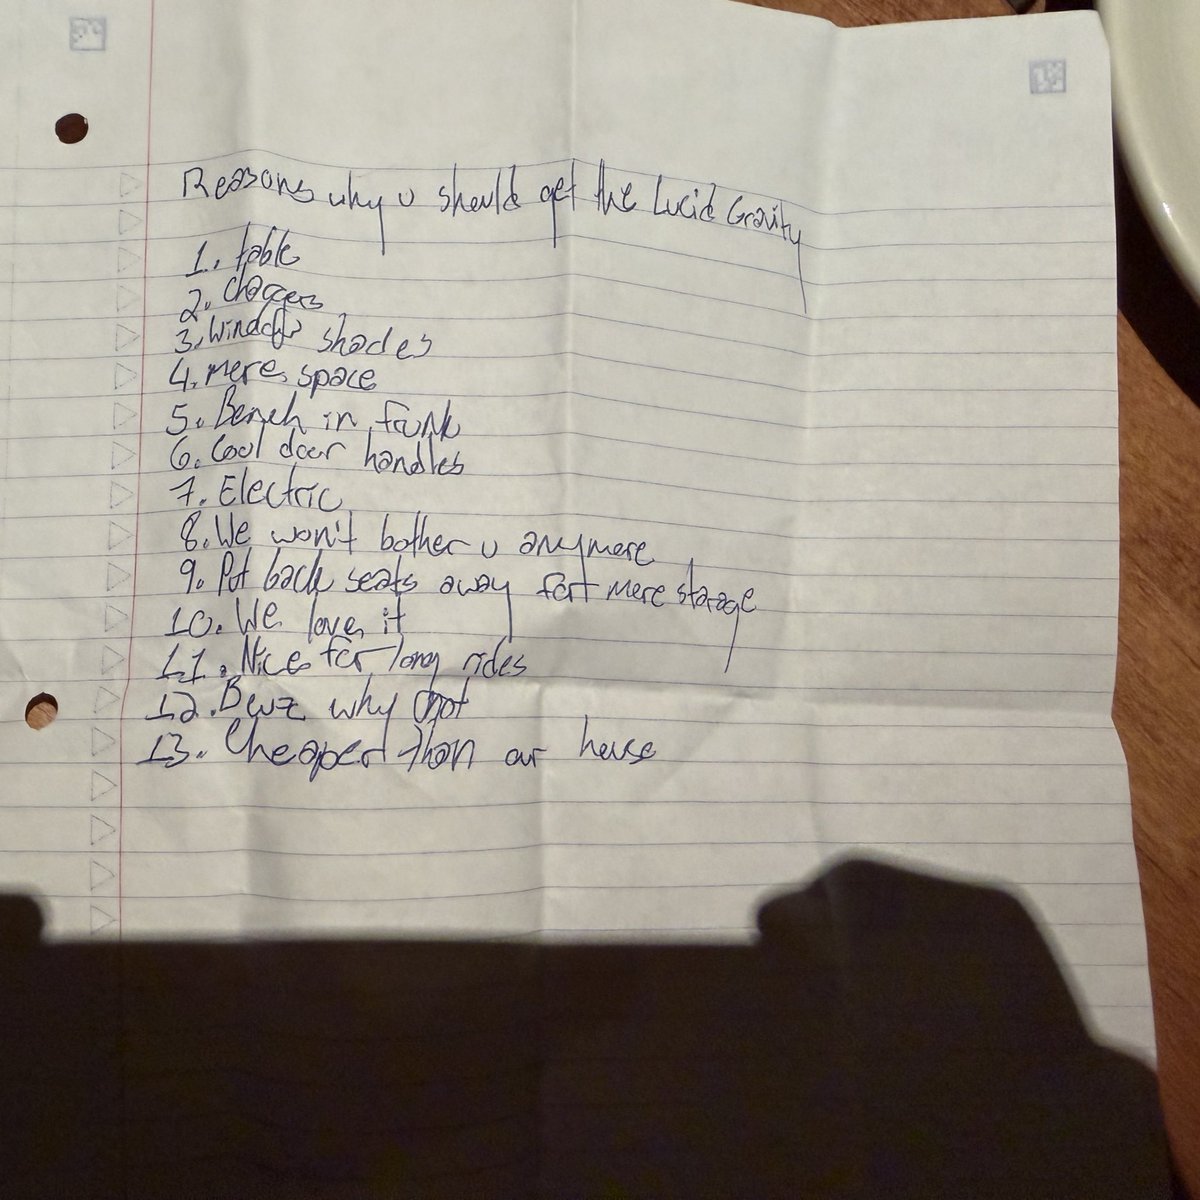 Reasons why u should get the Lucid Gravity
1. table
2. chargers
3. Window shades
4. more space
5. Bench in frunk
6. Cool door handles
7. Electric
8. We won't bother u anymore
9. Put back seats away for more storage
10. We love it
11. Nice for long rides
12. Bcuz why not
13. Cheaper than our house